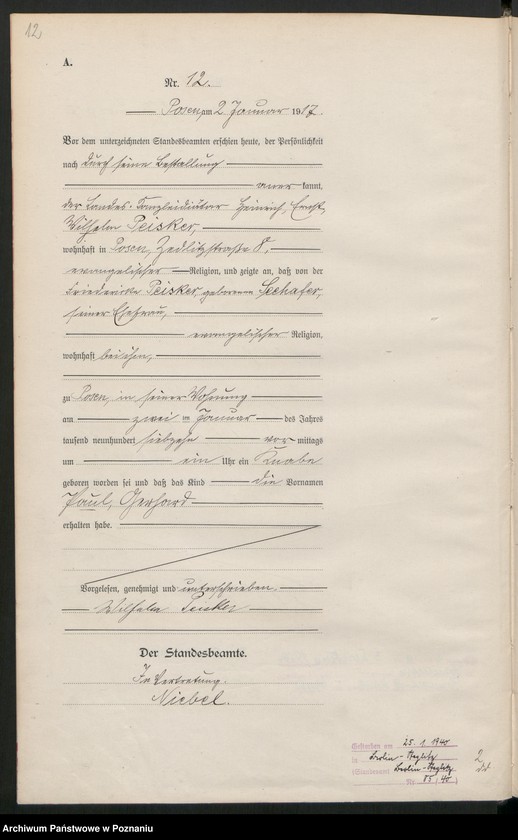 12
A.
Nr. 12.
Posen, am 2. Januar 1917.
Vor dem unterzeichneten Standesbeamten erschien heute, der Persönlichkeit
nach durch seine Bestallung
aner kannt,
der Landes-Kanzleidiätar Heinrich, Ernst,
Wilhelm Peisker,
wohnhaft in Posen, Zedlitzstraße 8,
evangelischer Religion, und zeigte an, daß von der
Friederike Peisker, geborenen Seehafer,
seiner Ehefrau,
evangelischer Religion,
wohnhaft bei ihm,
zu Posen, in seiner Wohnung
am zwei ten Januar des Jahres
tausend neunhundert siebzehn vor mittags
um ein Uhr ein Knabe
geboren worden sei und daß das Kind die Vornamen
Paul, Gerhard
erhalten habe.
Vorgelesen, genehmigt und unterschrieben.
Wilhelm Peisker
Der Standesbeamte.
In Vertretung.
Niebel.
Gestorben am 25. 1. 1940
in Berlin-Steglitz
(Standesamt Berlin-Steglitz
Nr. 85/40)
Archiwum Państwowe w Poznaniu